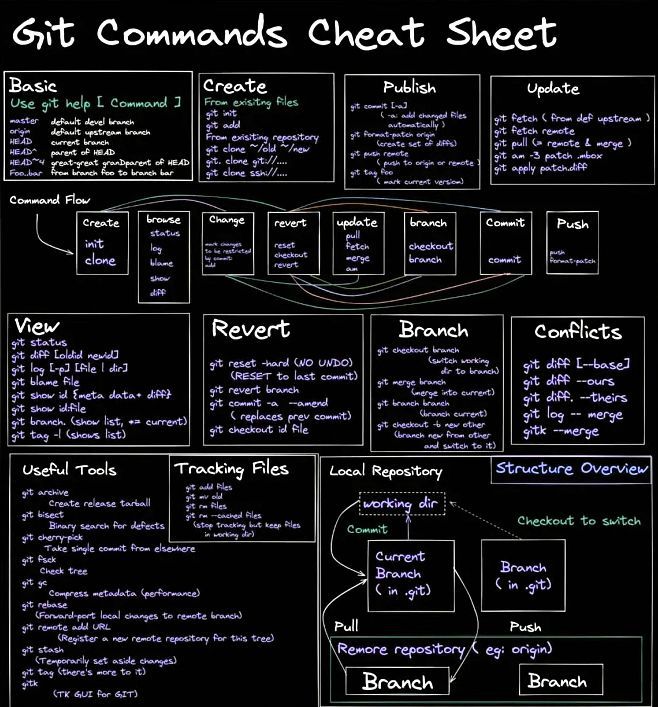 Git Commands Cheat Sheet
Basic
Use git help [ Command ]
master default devel branch
origin default upstream branch
HEAD current branch
HEAD^ parent of HEAD
HEAD~4 great-great granDparent of HEAD
Foo..bar from branch foo to branch bar
Create
From exisitng files
git init
git add
From exisiting repository
git clone ~/old ~/new
git. clone git://....
git clone ssh://....
Publish
git commit [-a]
( -a: add changed files
automatically )
git format-patch origin
(create set of diffs)
git push remote
( push to origin or remote )
git tag foo
( mark current version)
Update
git fetch ( from def upstream )
git fetch remote
git pull (= remote & merge )
git am -3 patch .mbox
git apply patch.diff
Command Flow
Create
init
clone
browse
status
log
blame
show
diff
Change
mark changes
to be restricted
by commit
add
revert
reset
checkout
revert
update
pull
fetch
merge
am
branch
checkout
branch
Commit
commit
Push
push
format-patch
View
git status
git diff [oldid newid]
git log [-p] [file | dir]
git blame file
git show id {meta data+ diff}
git show id:file
git branch. (show list, *= current)
git tag -l (shows list)
Revert
git reset -hard (NO UNDO)
(RESET to last commit)
git revert branch
git commit -a --amend
( replaces prev commit)
git checkout id file
Branch
git checkout branch
(switch working
dir to branch)
git merge branch
(merge into current)
git branch branch
(branch current)
git checkout -b new other
(branch new from other
and switch to it)
Conflicts
git diff [--base]
git diff --ours
git diff. --theirs
git log -- merge
gitk --merge
Useful Tools
git archive
Create release tarball
git bisect
Binary search for defects
git cherry-pick
Take single commit from elsewhere
git fsck
Check tree
git gc
Compress metadata (performance)
git rebase
(Forward-port local changes to remote branch)
git remote add URL
(Register a new remote repository for this tree)
git stash
(Temporarily set aside changes)
git tag (there's more to it)
gitk
(TK GUI for GIT)
Tracking Files
git add files
git mv old
git rm files
git rm --cached files
(stop tracking but keep files
in working dir)
Local Repository
Structure Overview
working dir
Commit
Checkout to switch
Current
Branch
( in .git)
Branch
( in .git)
Pull
Push
Remore repository ( eg: origin)
Branch
Branch